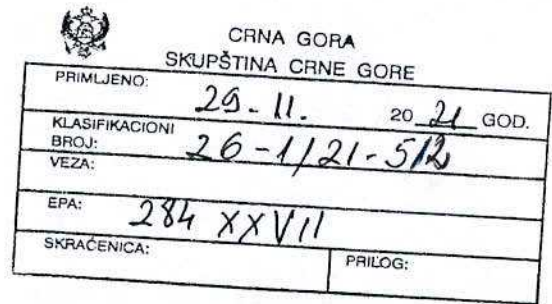 CRNA GORA
SKUPŠTINA CRNE GORE
PRIMLJENO: 29. 11. 20 21 GOD.
KLASIFIKACIONI
BROJ: 26-1/21-5/2
VEZA:
EPA: 284 XXVII
SKRAĆENICA: PRILOG: